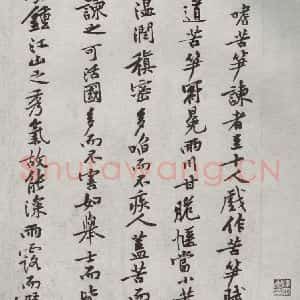 嗜苦笋諫者至十人戲作苦笋賦
道苦笋冠冕兩川甘脆愜當小苦
温潤稹密多啗而不疾人蓋苦而
諫之可活國多而不害如舉士而皆
鍾江山之秀氣故能深雨露而
Shufawang.CN